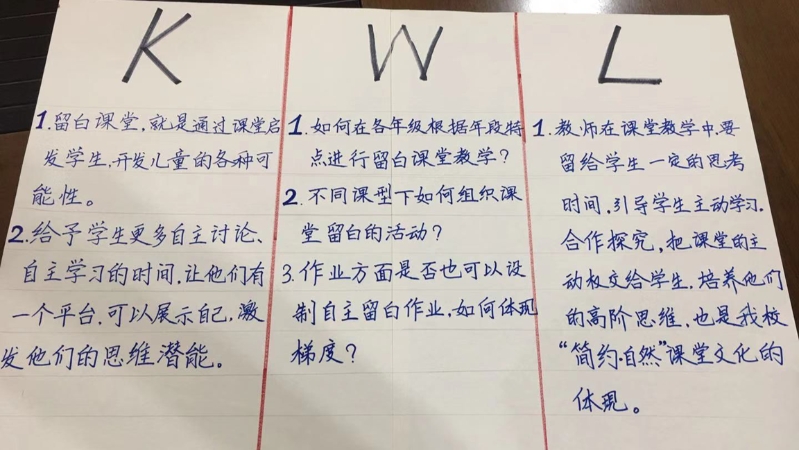 K
1.留白课堂,就是通过课堂启
发学生,开发儿童的各种可
能性。
2.给予学生更多自主讨论、
自主学习的时间,让他们有
一个平台,可以展示自己,激
发他们的思维潜能。
W
1.如何在各年级根据年段特
点进行留白课堂教学?
2.不同课型下如何组织课
堂留白的活动?
3.作业方面是否也可以设
制自主留白作业,如何体现
梯度?
L
1.教师在课堂教学中,要
留给学生一定的思考
时间,引导学生主动学习.
合作探究,把课堂的主
动权交给学生,培养他们
的高阶思维,也是我校
“简约·自然”课堂文化的
体现。